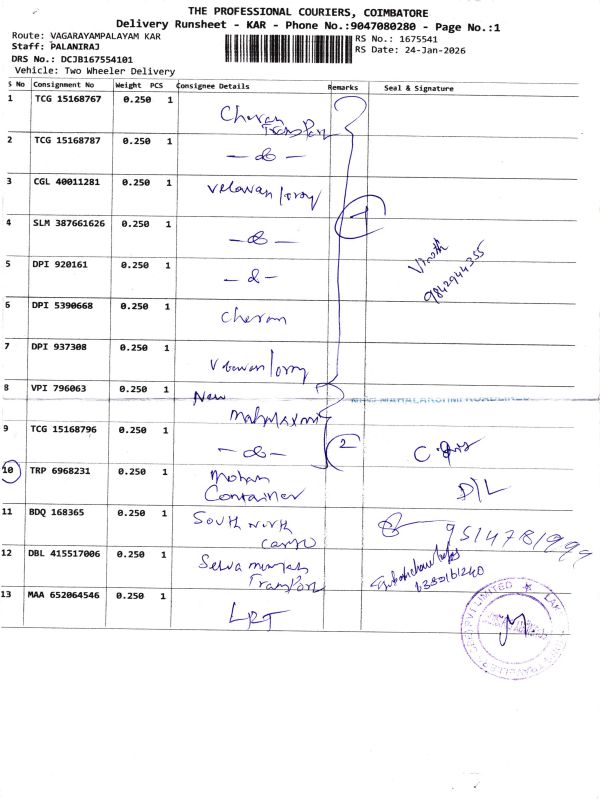 THE PROFESSIONAL COURIERS, COIMBATORE
Delivery Runsheet - KAR - Phone No.:9047080280 - Page No.:1
Route: VAGARAYAMPALAYAM KAR
Staff: PALANIRAJ
DRS No.: DCJB167554101
Vehicle: Two Wheeler Delivery
RS No.: 1675541
RS Date: 24-Jan-2026
S No Consignment No Weight PCS Consignee Details Remarks Seal & Signature
1 TCG 15168767 0.250 1 Cheran Transport
2 TCG 15168787 0.250 1 - do -
3 CGL 40011281 0.250 1 Velavan lorry
4 SLM 387661626 0.250 1 - do -
1
5 DPI 920161 0.250 1 - d -
Vinoth
9842944355
6 DPI 5390668 0.250 1 Cheran
7 DPI 937308 0.250 1 Velavan lorry
8 VPI 796063 0.250 1 New Mahalaxmi
MAHALAKSHMI ROADLINES
9 TCG 15168796 0.250 1 - do - 2
10 TRP 6968231 0.250 1 Mohan Container D/L
11 BDQ 168365 0.250 1 South North Cargo 9514781999
12 DBL 415517006 0.250 1 Selva Transport
13 MAA 652064546 0.250 1 LRT
PVT LIMITED